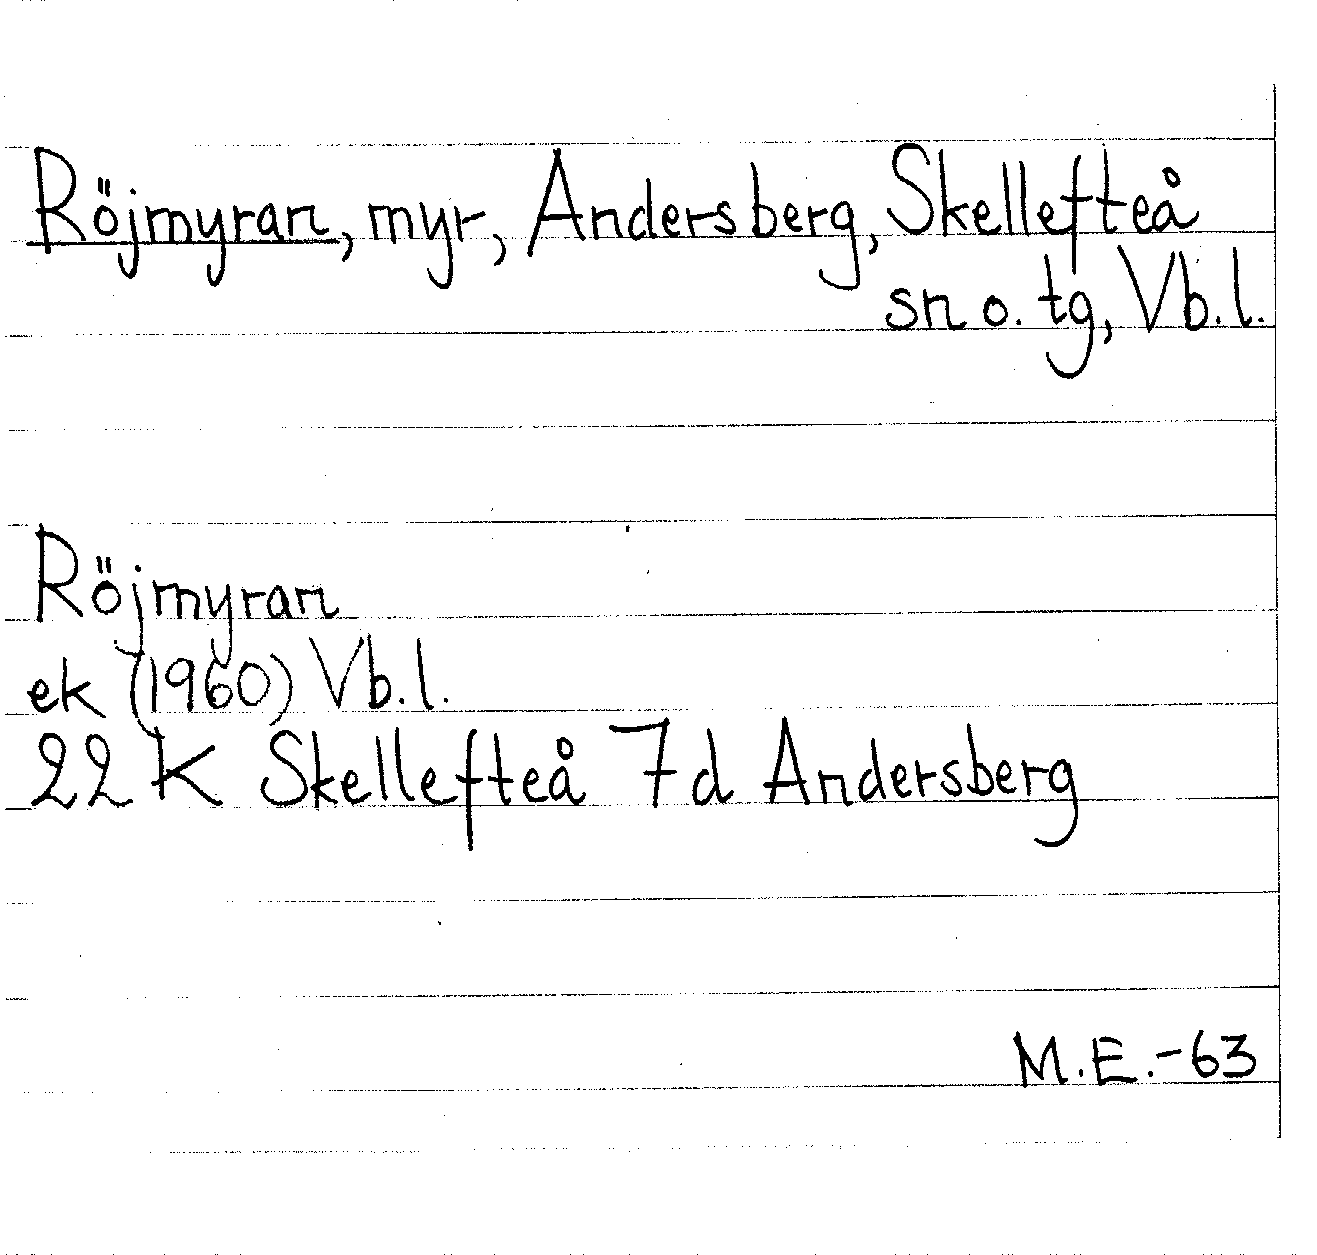 Röjmyran, myr, Andersberg, Skellefteå
sn o. tg, Vb.l.
Röjmyran
ek (1960) Vb.l.
22 K Skellefteå 7d Andersberg
M.E.-63